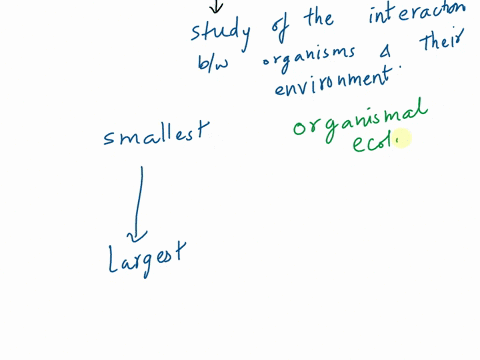 study of the interaction
b/w organisms & their
environment.
smallest
organismal
ecol
largest